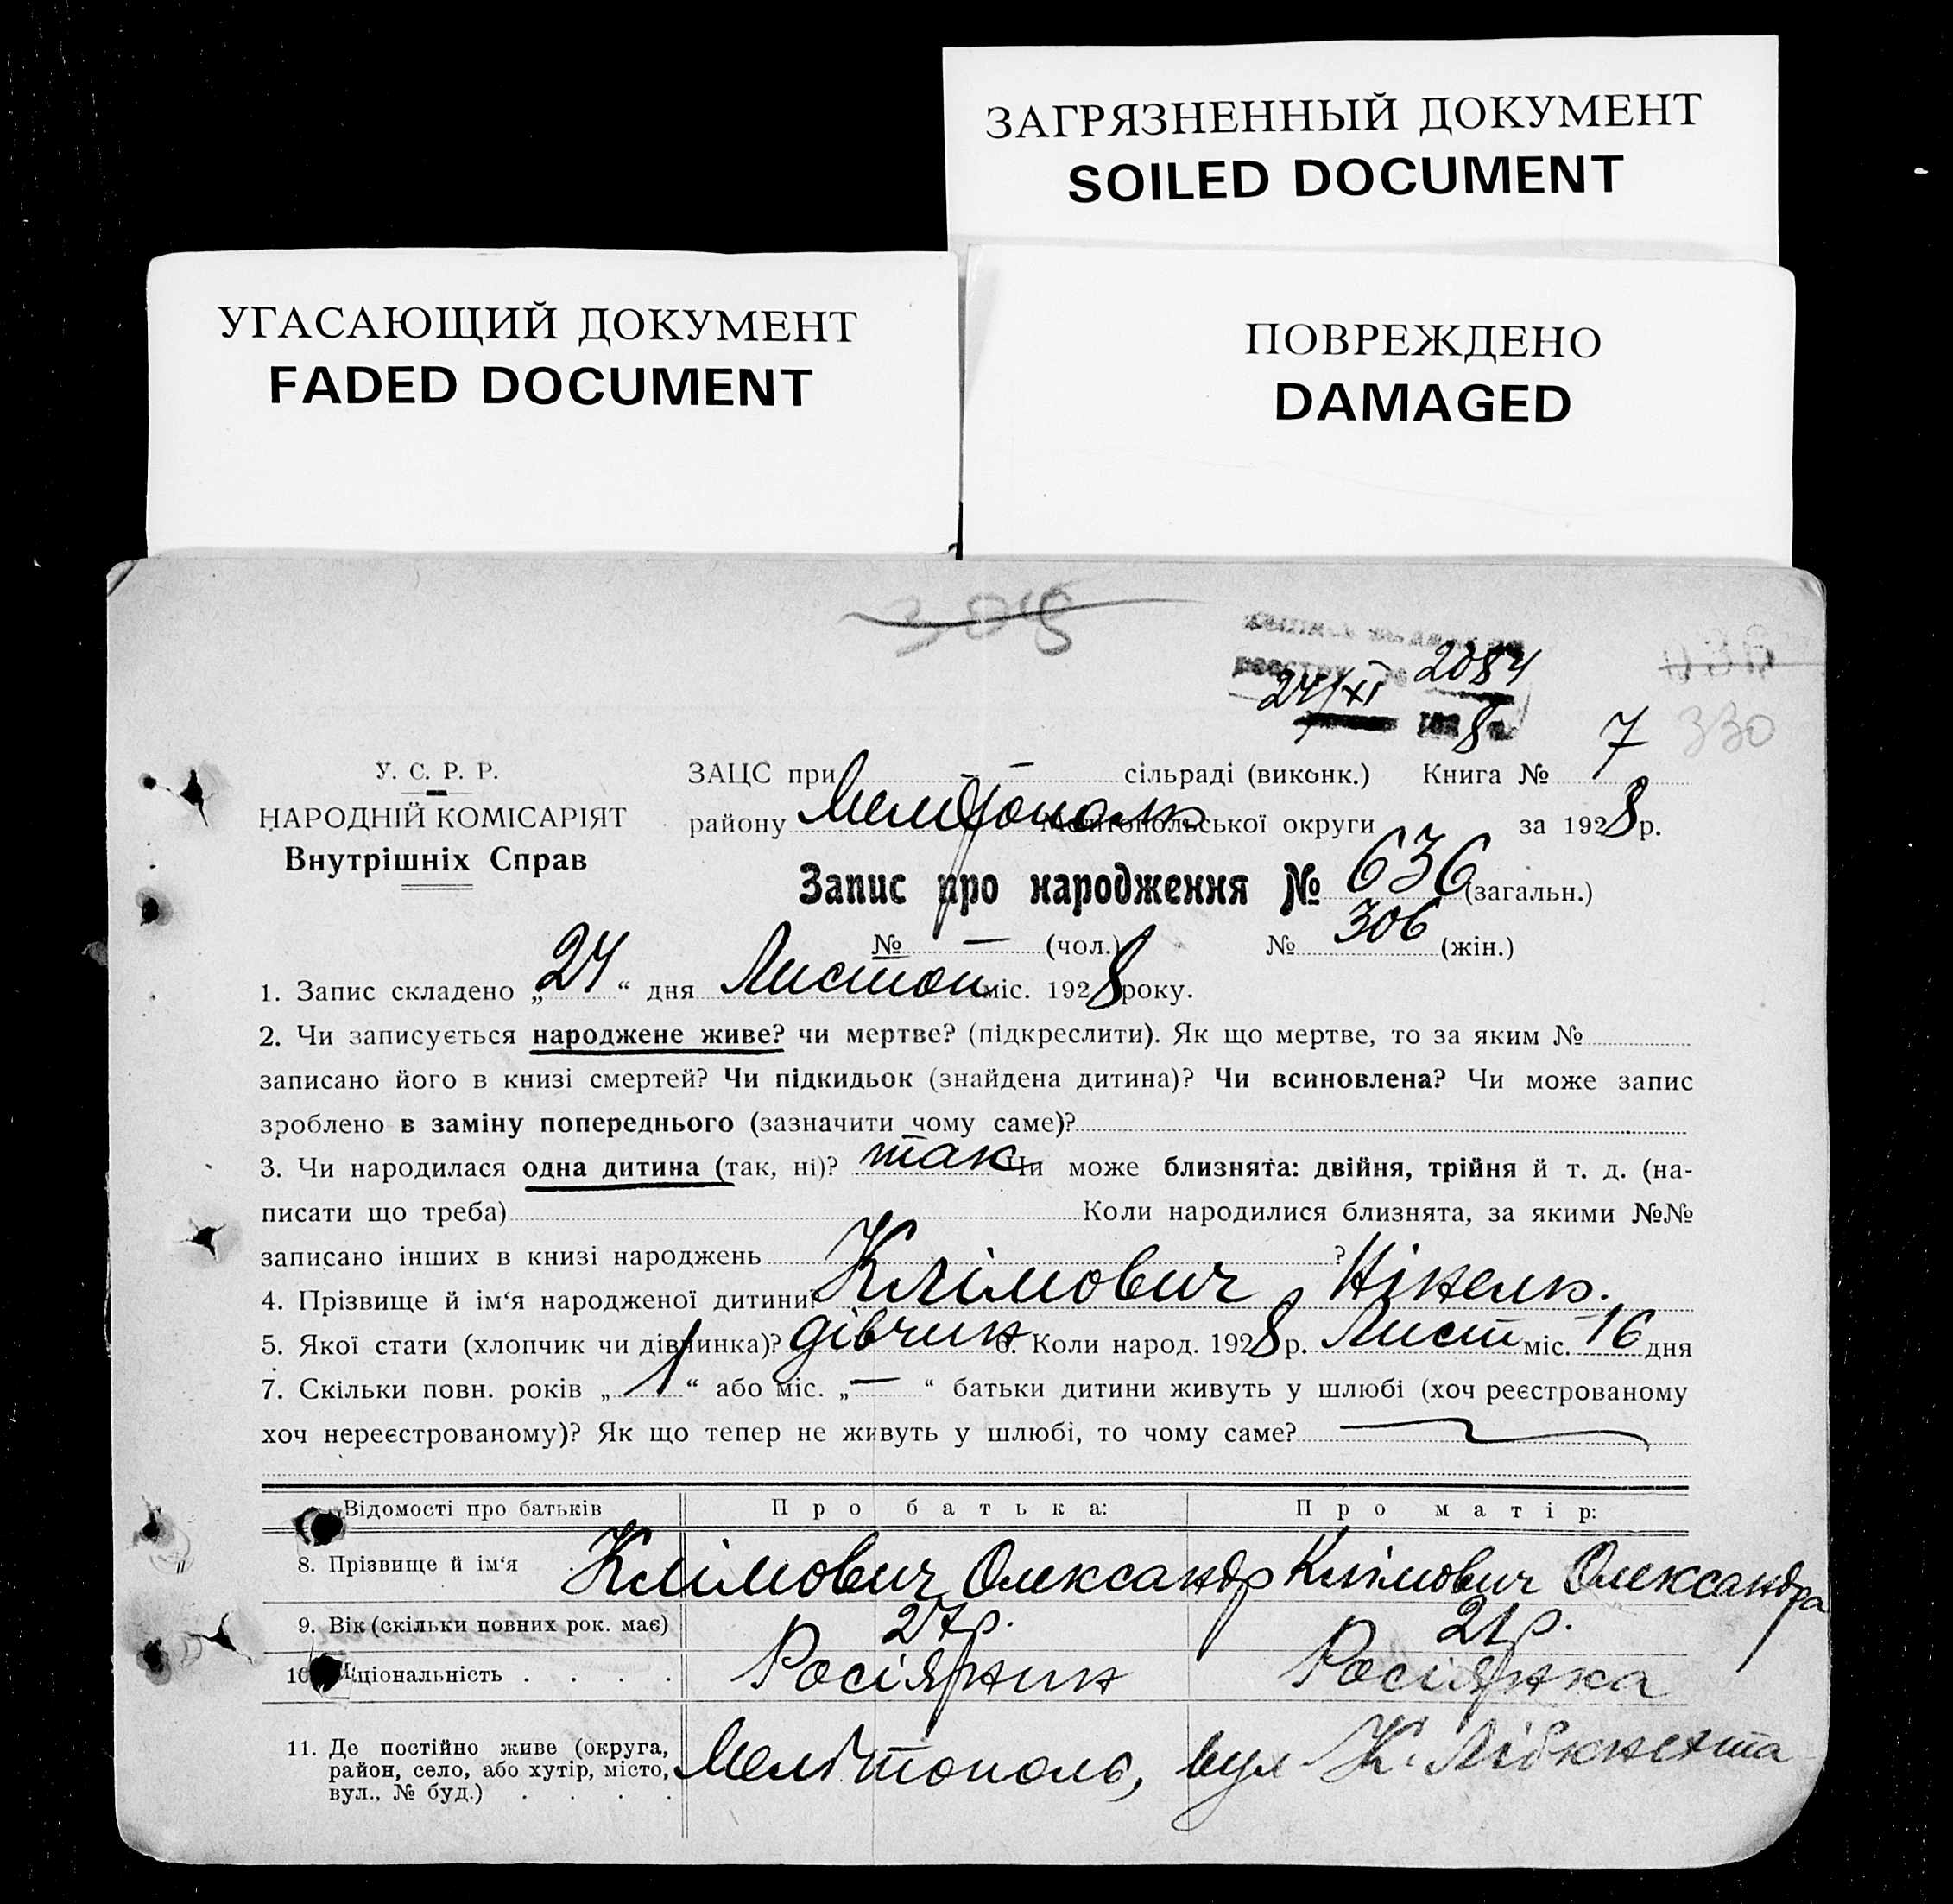 ЗАГРЯЗНЕННЫЙ ДОКУМЕНТ
SOILED DOCUMENT
УГАСАЮЩИЙ ДОКУМЕНТ
FADED DOCUMENT
ПОВРЕЖДЕНО
DAMAGED
305
2084
24/XI 8
330
У. С. Р. Р.
НАРОДНІЙ КОМІСАРІЯТ
Внутрішніх Справ
ЗАЦС при — сільраді (виконк.) Книга № 7
району Мелітополь Мелітопольської округи за 1928 р.
Запис про народження № 636 (загальн.)
№ — (чол.) № 306 (жін.)
1. Запис складено „24“ дня Листоп міс. 1928 року.
2. Чи записується народжене живе? чи мертве? (підкреслити). Як що мертве, то за яким №
записано його в книзі смертей? Чи підкидьок (знайдена дитина)? Чи всиновлена? Чи може запис
зроблено в заміну попереднього (зазначити чому саме)?
3. Чи народилася одна дитина (так, ні)? так Чи може близнята: двійня, трійня й т. д. (на-
писати що треба) Коли народилися близнята, за якими №№
записано інших в книзі народжень ?
4. Прізвище й ім‘я народженої дитини: Клімович Нінель.
5. Якої статі (хлопчик чи дівчинка)? дівчин 6. Коли народ. 1928 р. Лист міс. 16 дня
7. Скільки повн. років „1“ або міс. „—“ батьки дитини живуть у шлюбі (хоч реєстрованому
хоч нереєстрованому)? Як що тепер не живуть у шлюбі, то чому саме?
Відомості про батьків Про батька: Про матір:
8. Прізвище й ім‘я Клімович Олександр Клімович Олександра
9. Вік (скільки повних рок. має) 27 р. 21 р.
10. Національність . . . . Росіянин Росіянка
11. Де постійно живе (округа, район, село, або хутір, місто, вул., № буд.) . . . . Мелітополь, вул К. Лібкнехта